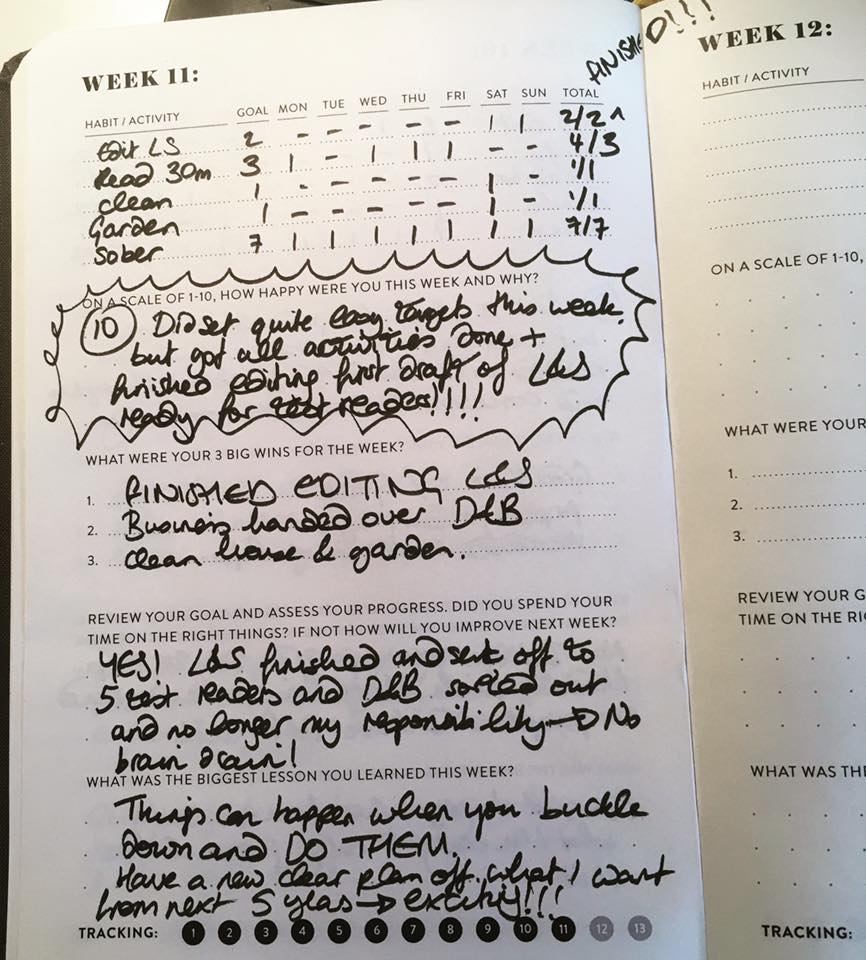 FINISHED!!!
WEEK 11:
HABIT / ACTIVITY GOAL MON TUE WED THU FRI SAT SUN TOTAL
Edit LS 2 - - - - - | | 2/2 ^
Read 30m 3 | - | | | - - 4/3
Clean 1 - - - - - | - 1/1
Garden 1 - - - - - | - 1/1
Sober 7 | | | | | | | 7/7
ON A SCALE OF 1-10, HOW HAPPY WERE YOU THIS WEEK AND WHY?
10 Did set quite easy targets this week,
but got all activities done +
finished editing first draft of L&S
ready for test readers!!!!
WHAT WERE YOUR 3 BIG WINS FOR THE WEEK?
1. FINISHED EDITING L&S
2. Business handed over D&B
3. Clean house & garden.
REVIEW YOUR GOAL AND ASSESS YOUR PROGRESS. DID YOU SPEND YOUR
TIME ON THE RIGHT THINGS? IF NOT HOW WILL YOU IMPROVE NEXT WEEK?
YES! L&S finished and sent off to
5 test readers and D&B sorted out
and no longer my responsibility → No
brain drain!
WHAT WAS THE BIGGEST LESSON YOU LEARNED THIS WEEK?
Things can happen when you buckle
down and DO THEM.
Have a new clear plan off what I want
from next 5 years → exciting!!!
TRACKING: 1 2 3 4 5 6 7 8 9 10 11 12 13
WEEK 12:
HABIT / ACTIVITY
ON A SCALE OF 1-10,
WHAT WERE YOUR
1.
2.
3.
REVIEW YOUR G
TIME ON THE RI
WHAT WAS THE
TRACKING: